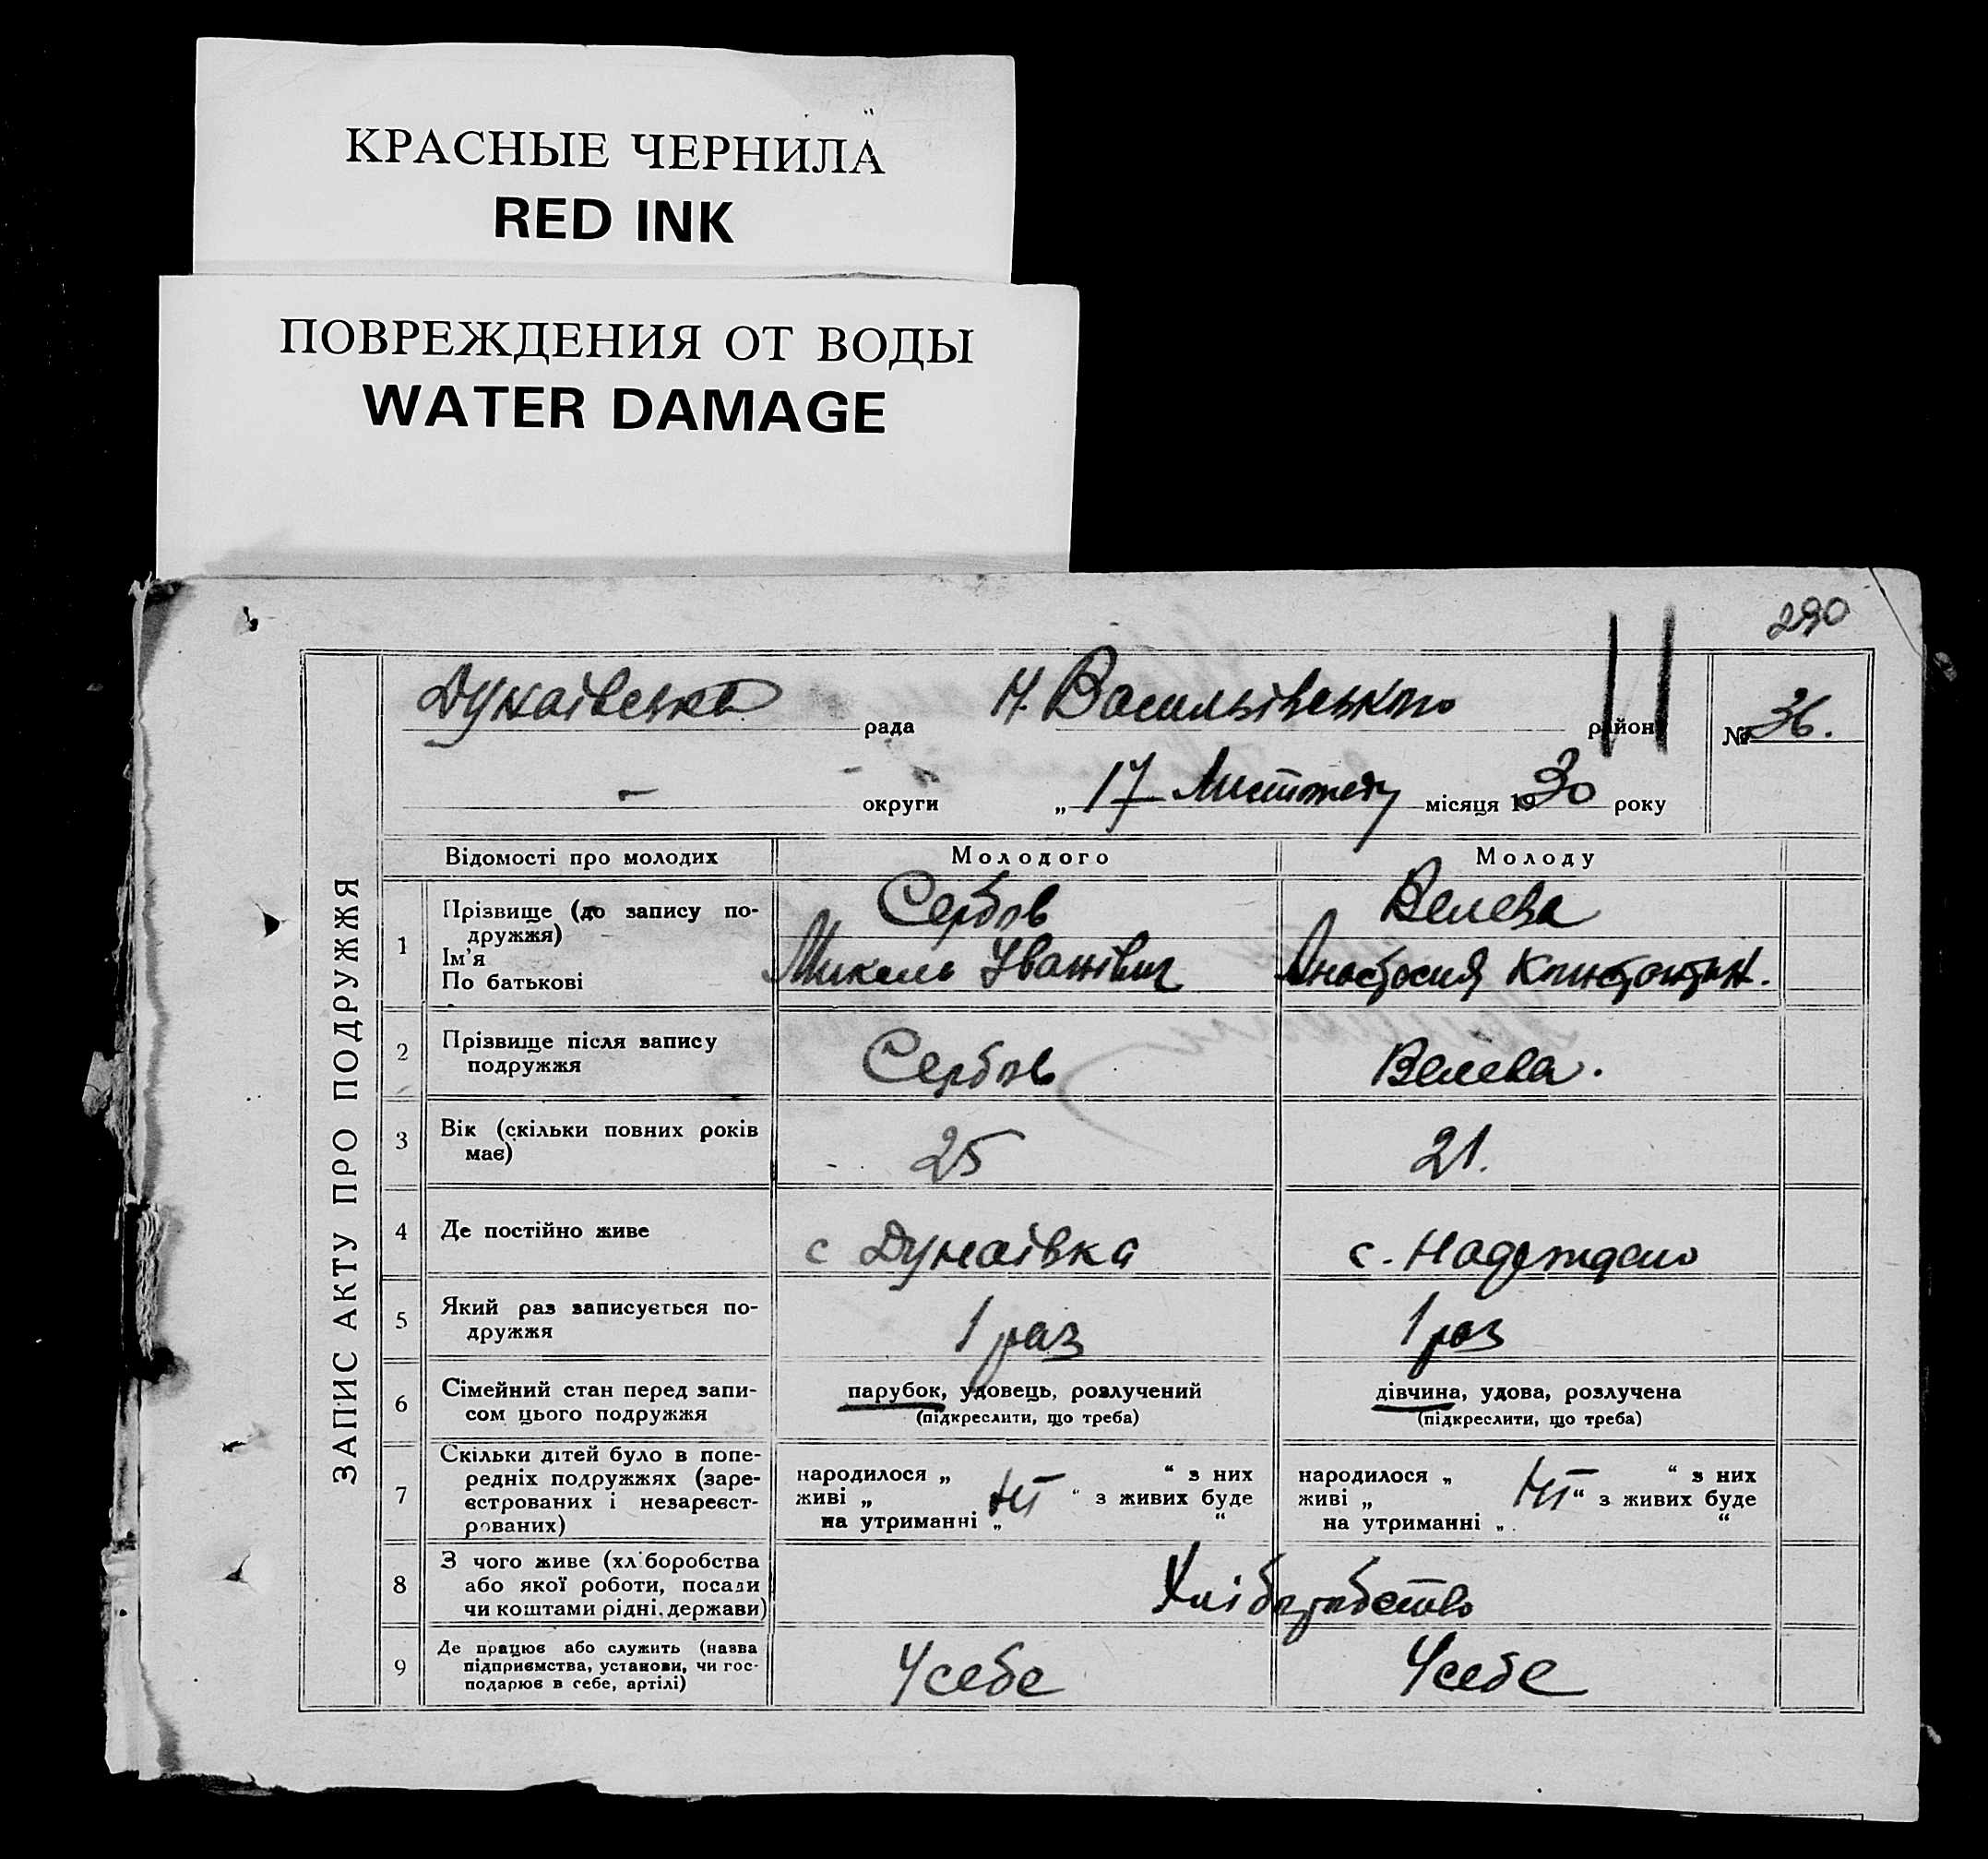 КРАСНЫЕ ЧЕРНИЛА
RED INK
ПОВРЕЖДЕНИЯ ОТ ВОДЫ
WATER DAMAGE
290
ЗАПИС АКТУ ПРО ПОДРУЖЖЯ
Дунаівська рада Н. Васильівського район № 36.
— округи „17 Листопаду місяця 1930 року
Відомості про молодих Молодого Молоду
1 Прізвище (до запису по- Сербов Велева
дружжя)
Ім'я Микола Іванівич Анастасия Констонтин.
По батькові
2 Прізвище після запису Сербов Велева.
подружжя
3 Вік (скільки повних років 25 21.
має)
4 Де постійно живе с Дунаівка с. Надеждено
5 Який раз записується по- 1 раз 1 раз
дружжя
6 Сімейний стан перед запи- парубок, удовець, розлучений дівчина, удова, розлучена
сом цього подружжя (підкреслити, що треба) (підкреслити, що треба)
7 Скільки дітей було в попе-
редніх подружжях (заре- народилося „ “ з них народилося „ “ з них
єстрованих і незареєст- живі „ ні “ з живих буде живі „ ні “ з живих буде
рованих) на утриманні „ “ на утриманні „ “
8 З чого живе (хліборобства Хліборобство
або якої роботи, посади
чи коштами рідні, держави)
9 Де працює або служить (назва У себе У себе
підприємства, установи, чи гос-
подарює в себе, артілі)